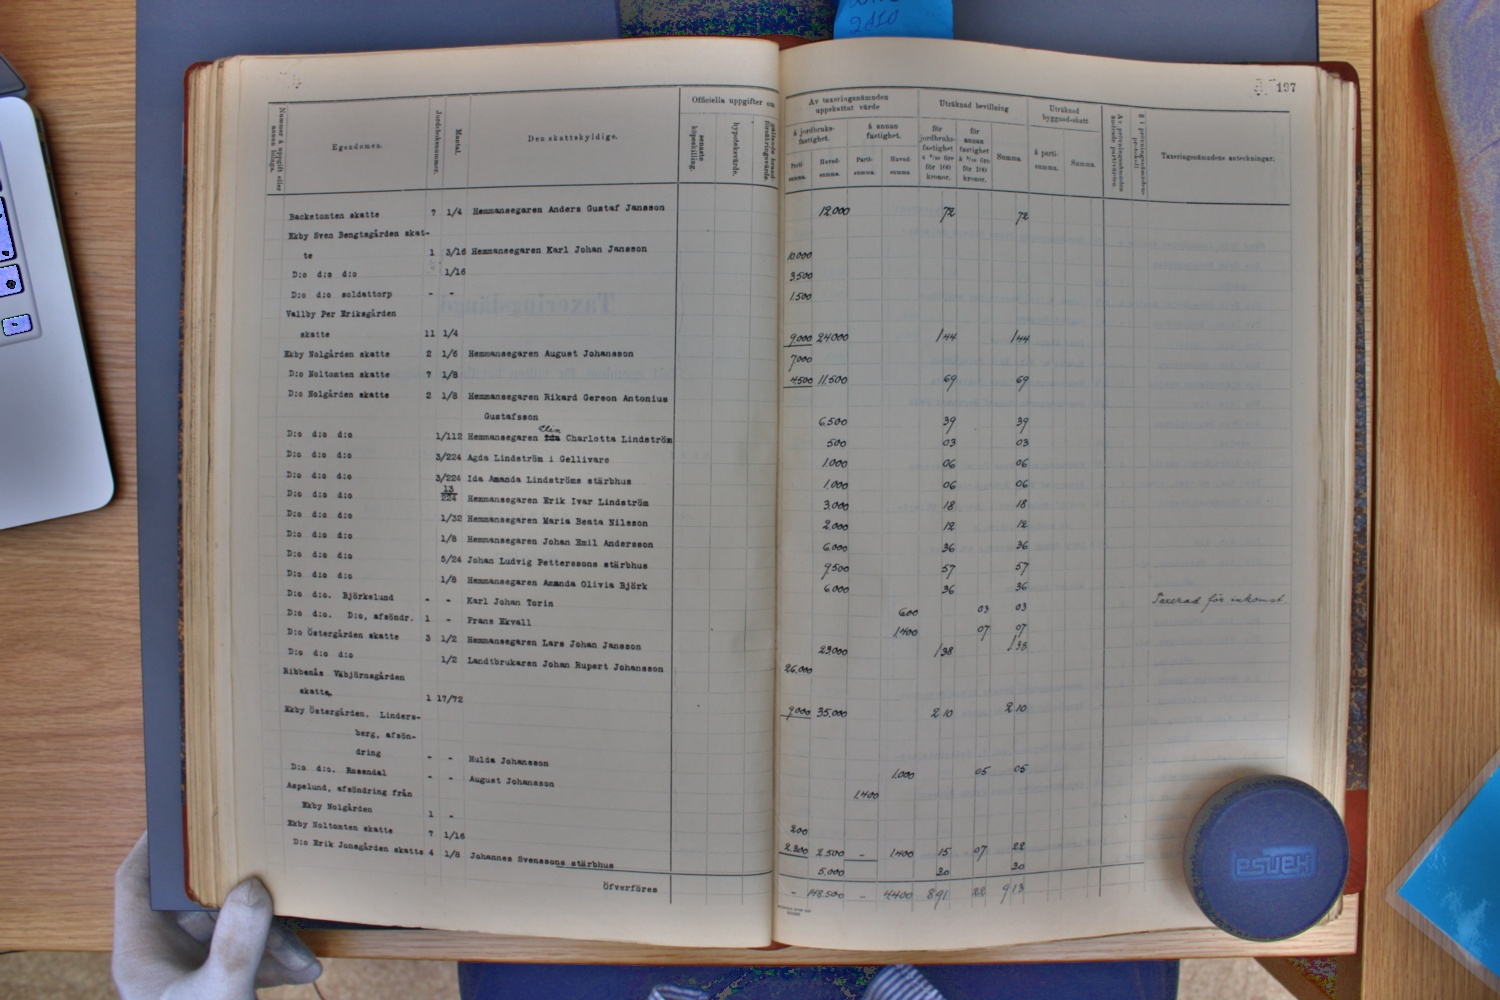 197
Nummer å uppgift eller annan bilaga.
Egendomen.
Jordeboksnummer.
Mantal.
Den skattskyldige.
Officiella uppgifter om
senaste köpeskilling.
hypoteksvärde.
gällande brandförsäkringsvärde.
Av taxeringsnämnden uppskattat värde
å jordbruksfastighet.
å annan fastighet.
Parti-summa.
Huvud-summa.
Parti-summa.
Huvud-summa.
Uträknad bevillning
för jordbruksfastighet
för 100 kronor.
för annan fastighet
för 100 kronor.
Summa.
Uträknad byggnadsskatt
å parti-summa.
Summa.
Taxeringsnämndens anteckningar.
Backetomten skatte 7 1/4 Hemmansegaren Anders Gustaf Jansson 12,000 72 72
Ekby Sven Bengtsgården skat-
te 1 3/16 Hemmansegaren Karl Johan Jansson 10,000
D:o d:o d:o 1/16 3,500
D:o d:o soldattorp - - 1,500
Vallby Per Eriksgården
skatte 11 1/4 9,000 24,000 1 44 1 44
Ekby Nolgården skatte 2 1/6 Hemmansegaren August Johansson 7,000
D:o Noltomten skatte 7 1/8 4,500 11,500 69 69
D:o Nolgården skatte 2 1/8 Hemmansegaren Rikard Gerson Antonius
Gustafsson 6,500 39 39
D:o d:o d:o 1/112 Hemmansegaren Elin Charlotta Lindström 500 03 03
D:o d:o d:o 3/224 Agda Lindström i Gellivare 1,000 06 06
D:o d:o d:o 3/224 Ida Amanda Lindströms stärbhus 1,000 06 06
D:o d:o d:o 13/224 Hemmansegaren Erik Ivar Lindström 3,000 18 18
D:o d:o d:o 1/32 Hemmansegaren Maria Beata Nilsson 2,000 12 12
D:o d:o d:o 1/8 Hemmansegaren Johan Emil Andersson 6,000 36 36
D:o d:o d:o 5/24 Johan Ludvig Petterssons stärbhus 9,500 57 57
D:o d:o d:o 1/8 Hemmansegaren Amanda Olivia Björk 6,000 36 36
D:o d:o. Björkelund - - Karl Johan Torin 600 03 03 Taxerad för inkomst.
D:o d:o. D:o, afsöndr. 1 - Frans Ekvall 1,400 07 07
D:o Östergården skatte 3 1/2 Hemmansegaren Lars Johan Jansson 23,000 1 38 1 38
D:o d:o d:o 1/2 Landtbrukaren Johan Rupert Johansson 26,000
Ribbenås Väbjörnsgården
skatte 1 17/72 9,000 35,000 2 10 2 10
Ekby Östergården, Linders-
berg, afsön-
dring - - Hulda Johansson 1,000 05 05
D:o d:o. Rosendal - - August Johansson 1,400
Aspelund, afsöndring från
Ekby Nolgården 1 - 200
Ekby Noltomten skatte 7 1/16 2,300 2,500 - 1,400 15 07 22
D:o Erik Jonsgården skatte 4 1/8 Johannes Svenssons stärbhus 5,000 30 30
Öfverföres - 148,500 - 4,400 8 91 22 9 13
Hansa